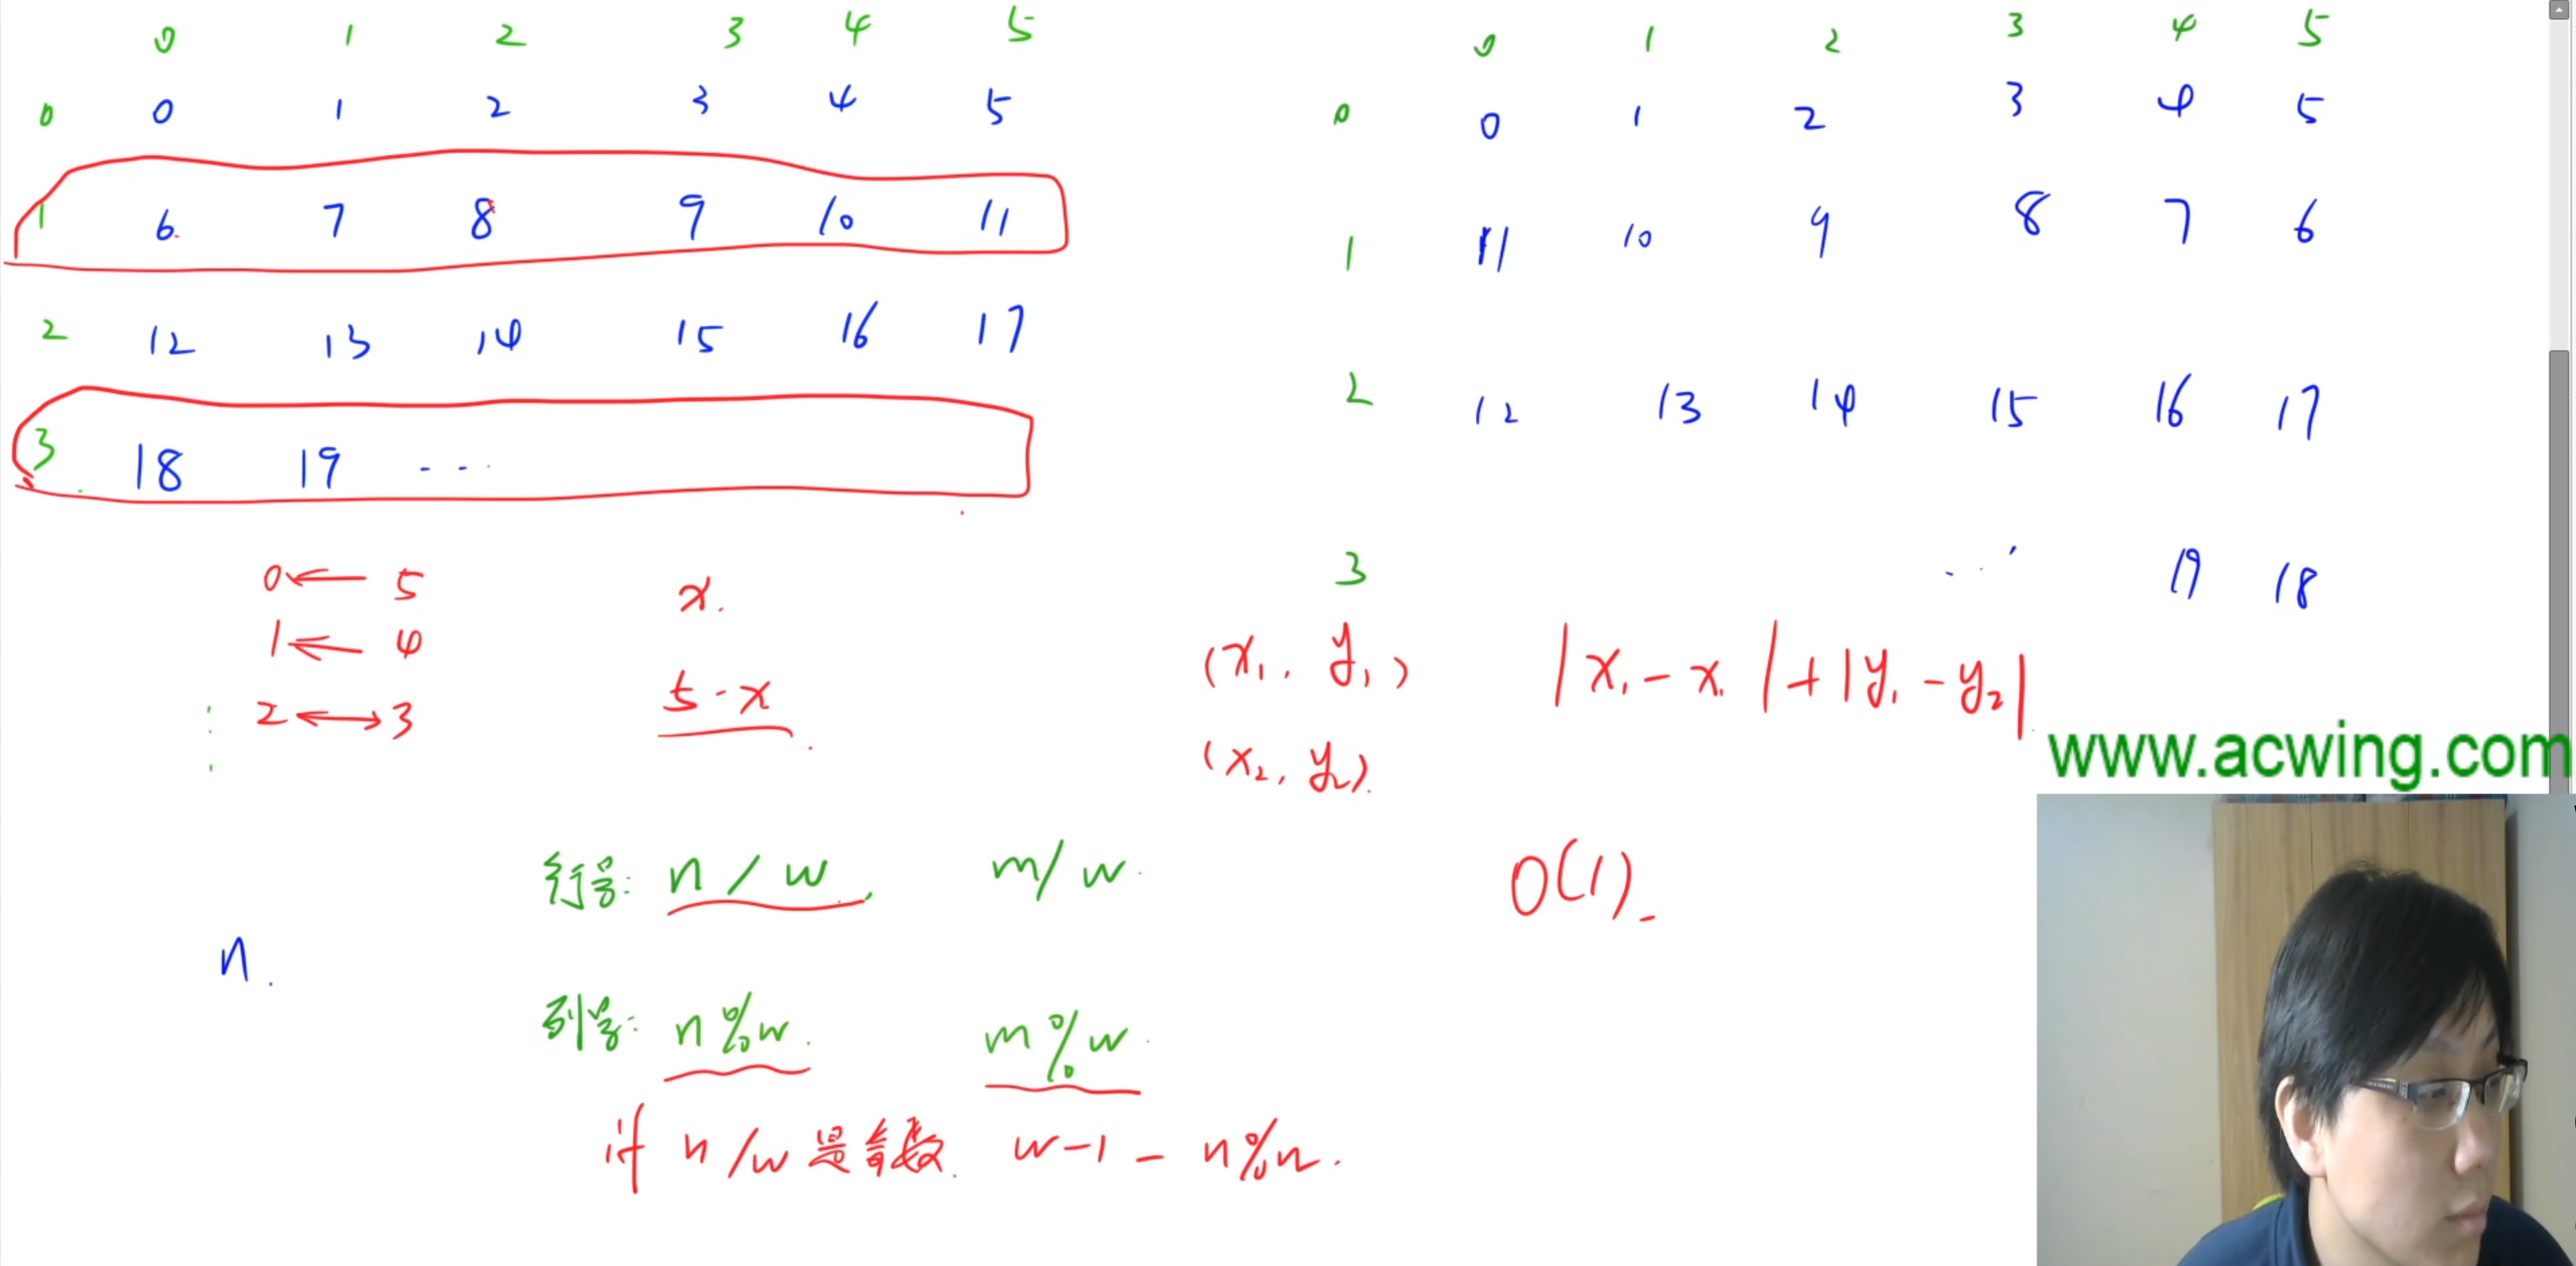 0 1 2 3 4 5
0 0 1 2 3 4 5
1 6 7 8 9 10 11
2 12 13 14 15 16 17
3 18 19 ...
0 1 2 3 4 5
0 0 1 2 3 4 5
1 11 10 9 8 7 6
2 12 13 14 15 16 17
3 ... 19 18
0 ← 5
1 ← 4
2 ↔ 3
x.
5-x
(x₁, y₁)
(x₂, y₂)
|x₁-x₁|+|y₁-y₂|
www.acwing.com
行号: n/w m/w
O(1)
n.
列号: n%w m%w
if n/w 是奇数 w-1-n%w.